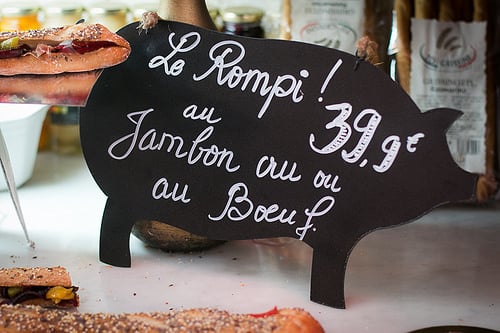 Le Rompi !
au 39,9€
Jambon cru ou
au Boeuf.